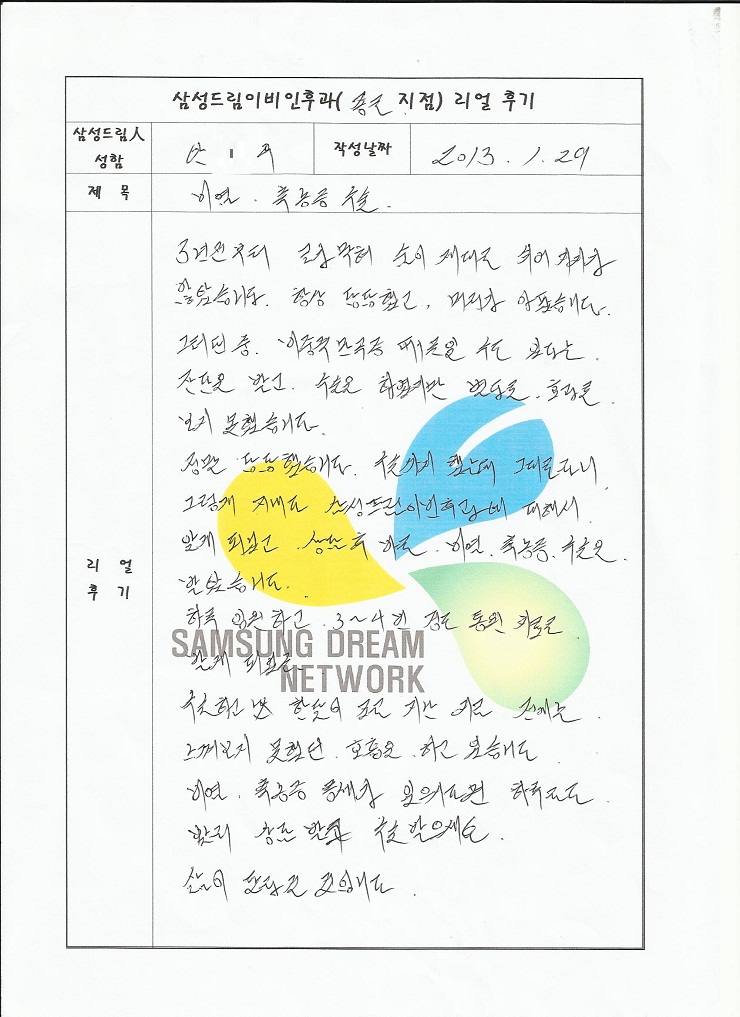 삼성드림이비인후과( 종로 지점) 리얼 후기
삼성드림人 성함
작성날짜 2013. 1. 29
제 목 비염. 축농증 수술.
리 얼 후 기
3년전부터 코가 막혀 숨이 제대로 쉬어 지지가
않았습니다. 항상 답답했고, 머리가 아팠습니다.
그러던 중. 수도 있다는
진단을 받고. 수술을 하였지만 변동도. 효과를
보지 못했습니다.
정말 답답했습니다. 수술까지 했는데 그대로라니
그렇게 지내다 삼성드림이비인후과에 대해서
알게 되었고. 상담 후 바로. 비염. 축농증. 수술을.
받았습니다.
하루 입원하고. 3~4번 정도 통원 치료를
받게 되었죠.
SAMSUNG DREAM
NETWORK
수술하고 난 한달이 조금 지난 지금 전에는.
느껴보지 못했던. 호흡을. 하고 있습니다
비염. 축농증 증세가 있으시다면 하루라도.
빨리 상담 받고 수술 받으세요.
삶이 달라질 것입니다.